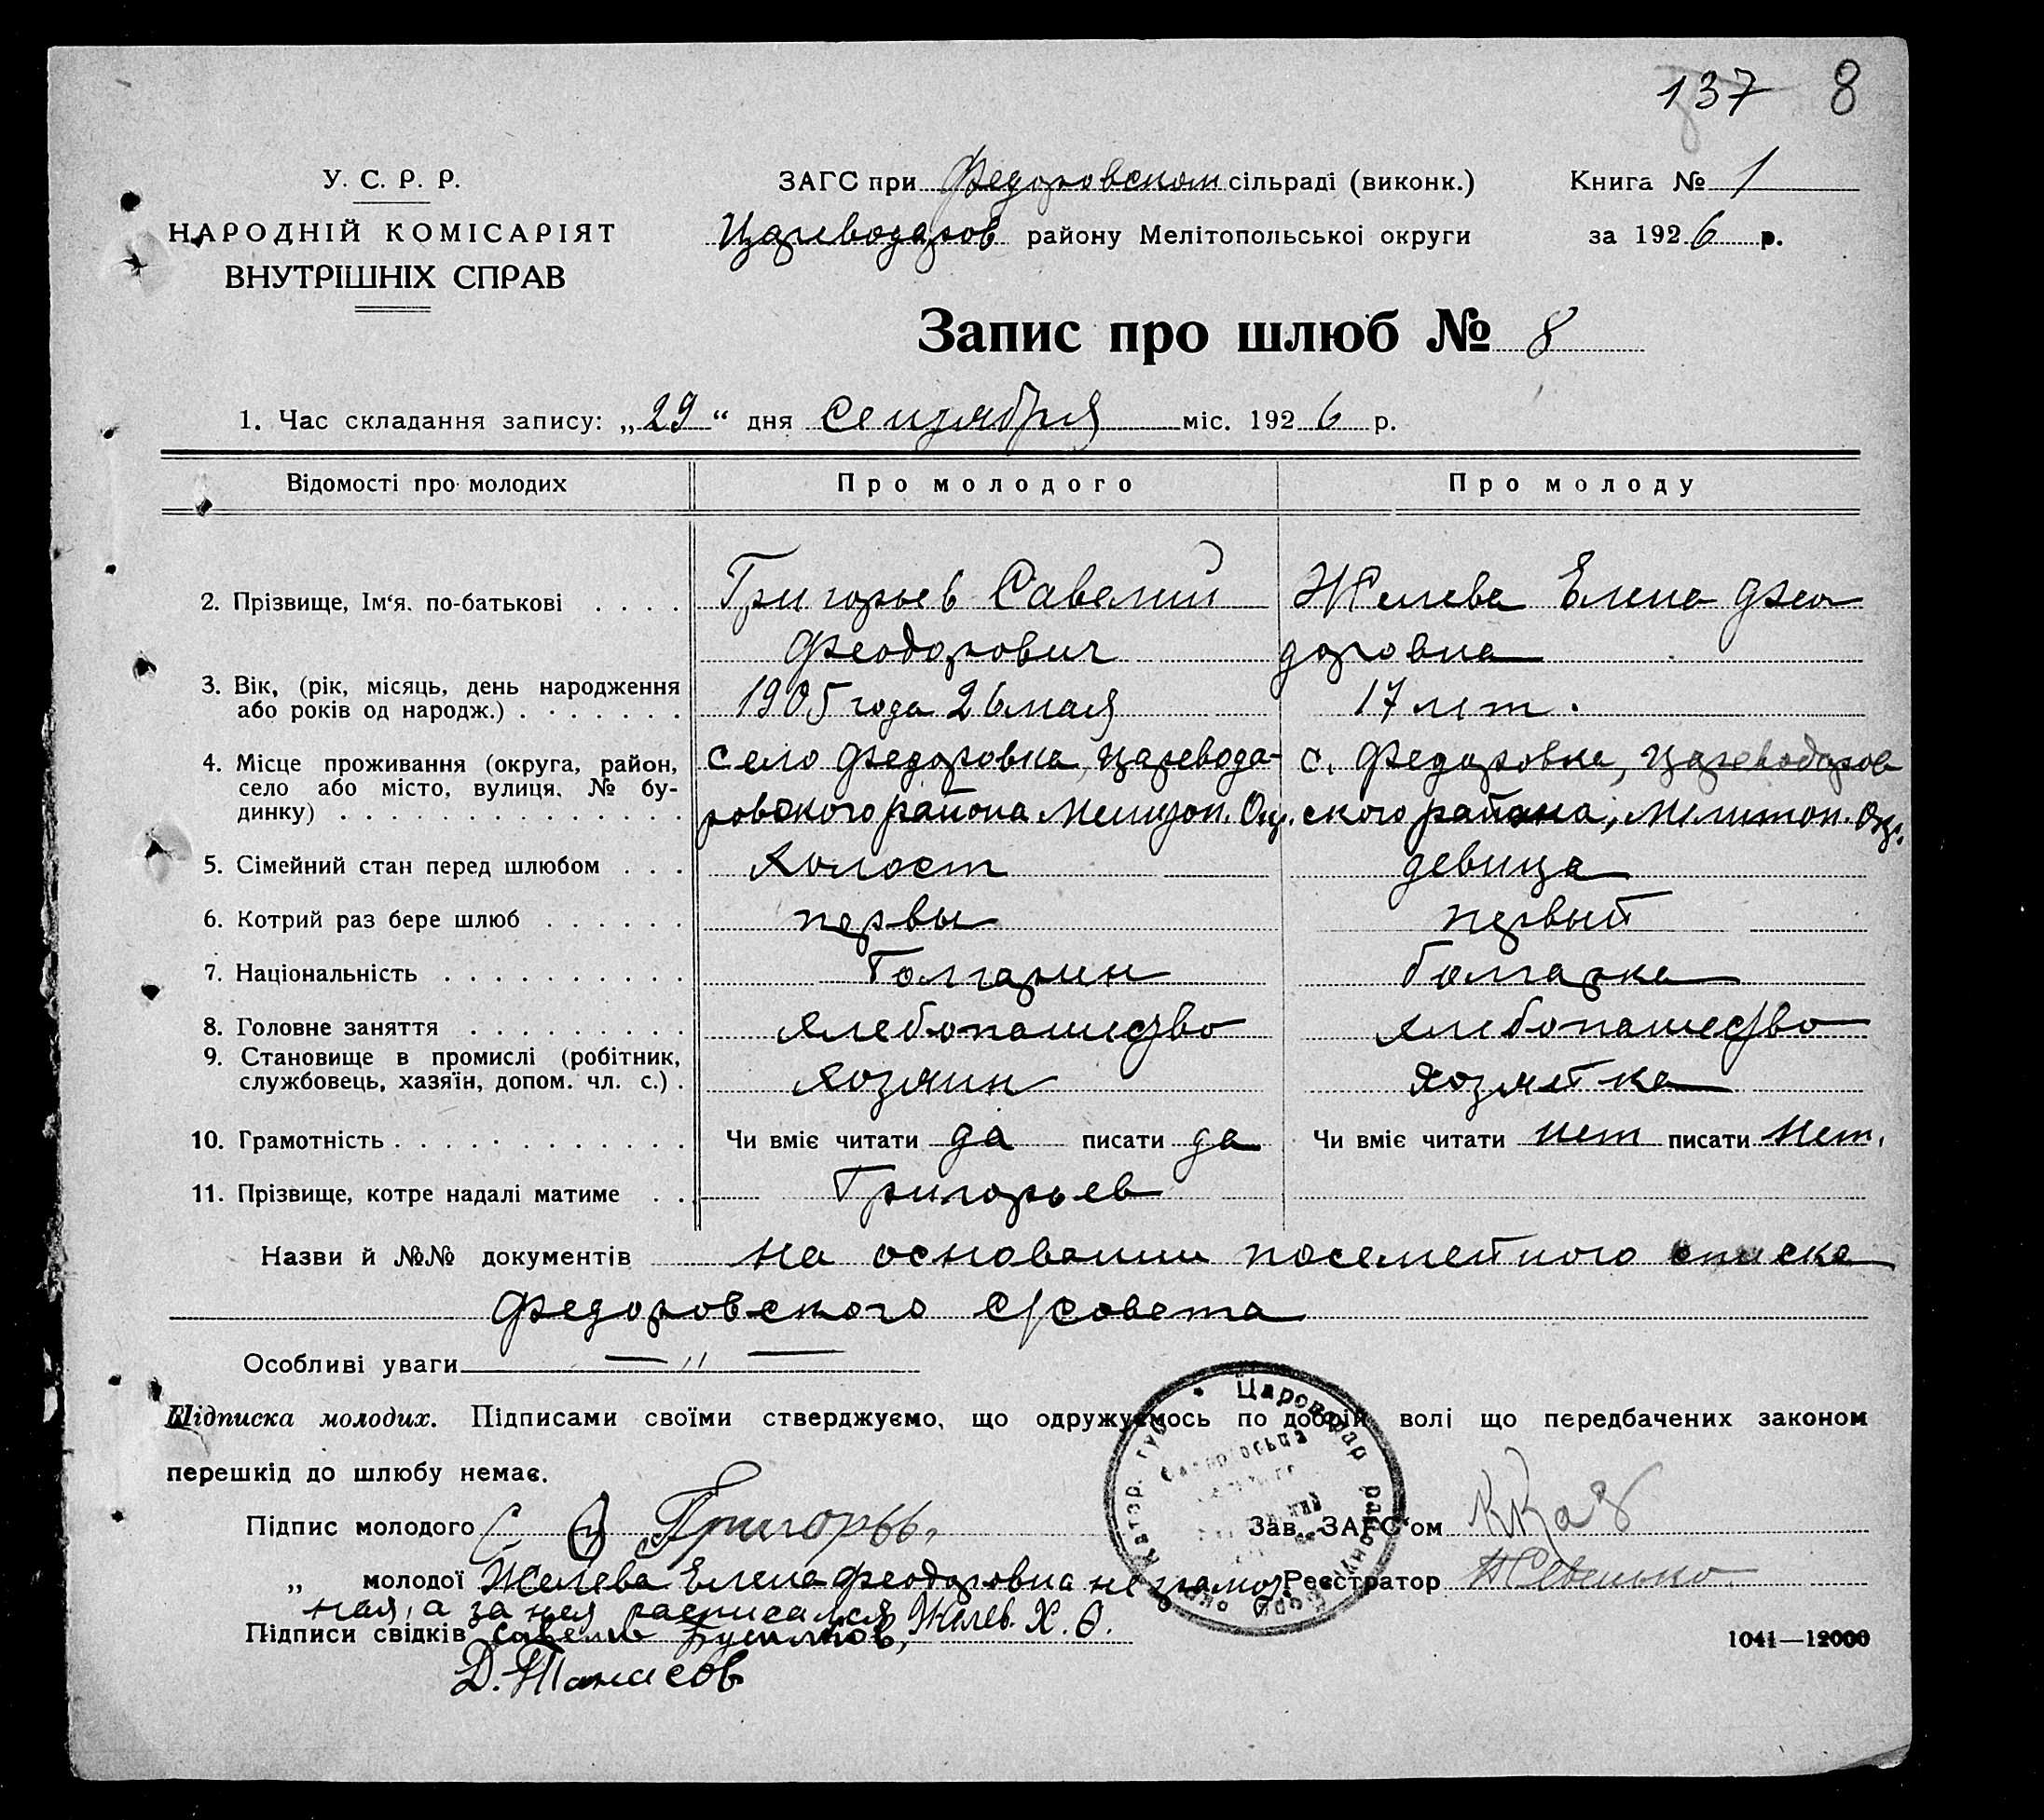 137 8
У. С. Р. Р.
НАРОДНІЙ КОМІСАРІЯТ
ВНУТРІШНІХ СПРАВ
ЗАГС при Федоровском сільраді (виконк.)
Цареводаров району Мелітопольської округи
Книга № 1
за 1926 р.
Запис про шлюб № 8
1. Час складання запису: „29“ дня Сентября міс. 1926 р.
Відомості про молодих Про молодого Про молоду
2. Прізвище, Ім‘я, по-батькові . . . . Григорьев Савелий Желева Елена Фео
Феодорович доровна
3. Вік, (рік, місяць, день народження
або років од народж.) . . . . . . . 1905 года 26 мая 17 лет.
4. Місце проживання (округа, район, Село Федоровка, Царевода- с. Федоровка, Цареводаров
село або місто, вулиця, № бу-
динку) . . . . . . . . . . . . . . ровского района Мелитоп. Окр. ского района, Мелитоп. Окр.
5. Сімейний стан перед шлюбом . . . Холост девица
6. Котрий раз бере шлюб . . . . . . первы первый
7. Національність . . . . . . . . . . Болгарин болгарка
8. Головне заняття . . . . . . . . . хлебопашество хлебопашество
9. Становище в промислі (робітник,
службовець, хазяїн, допом. чл. с.) . хозяин хозяйка
10. Грамотність . . . . . . . . . . . . Чи вміє читати да писати да Чи вміє читати нет писати нет.
11. Прізвище, котре надалі матиме . . Григорьев
Назви й №№ документів на основании посемейного списка
Федоровского с/совета
Особливі уваги — " —
Підписка молодих. Підписами своїми стверджуємо, що одружуємось по добрій волі що передбачених законом
перешкід до шлюбу немає.
Підпис молодого С Ф Григорьв.
Зав. ЗАГС‘ом
„ молодої Желева Елена Феодоровна не грамот
Реєстратор
ная, а за нея расписался Желев. Х. Ф.
Підписи свідків Савелий
Д. Танасов
1041—12000